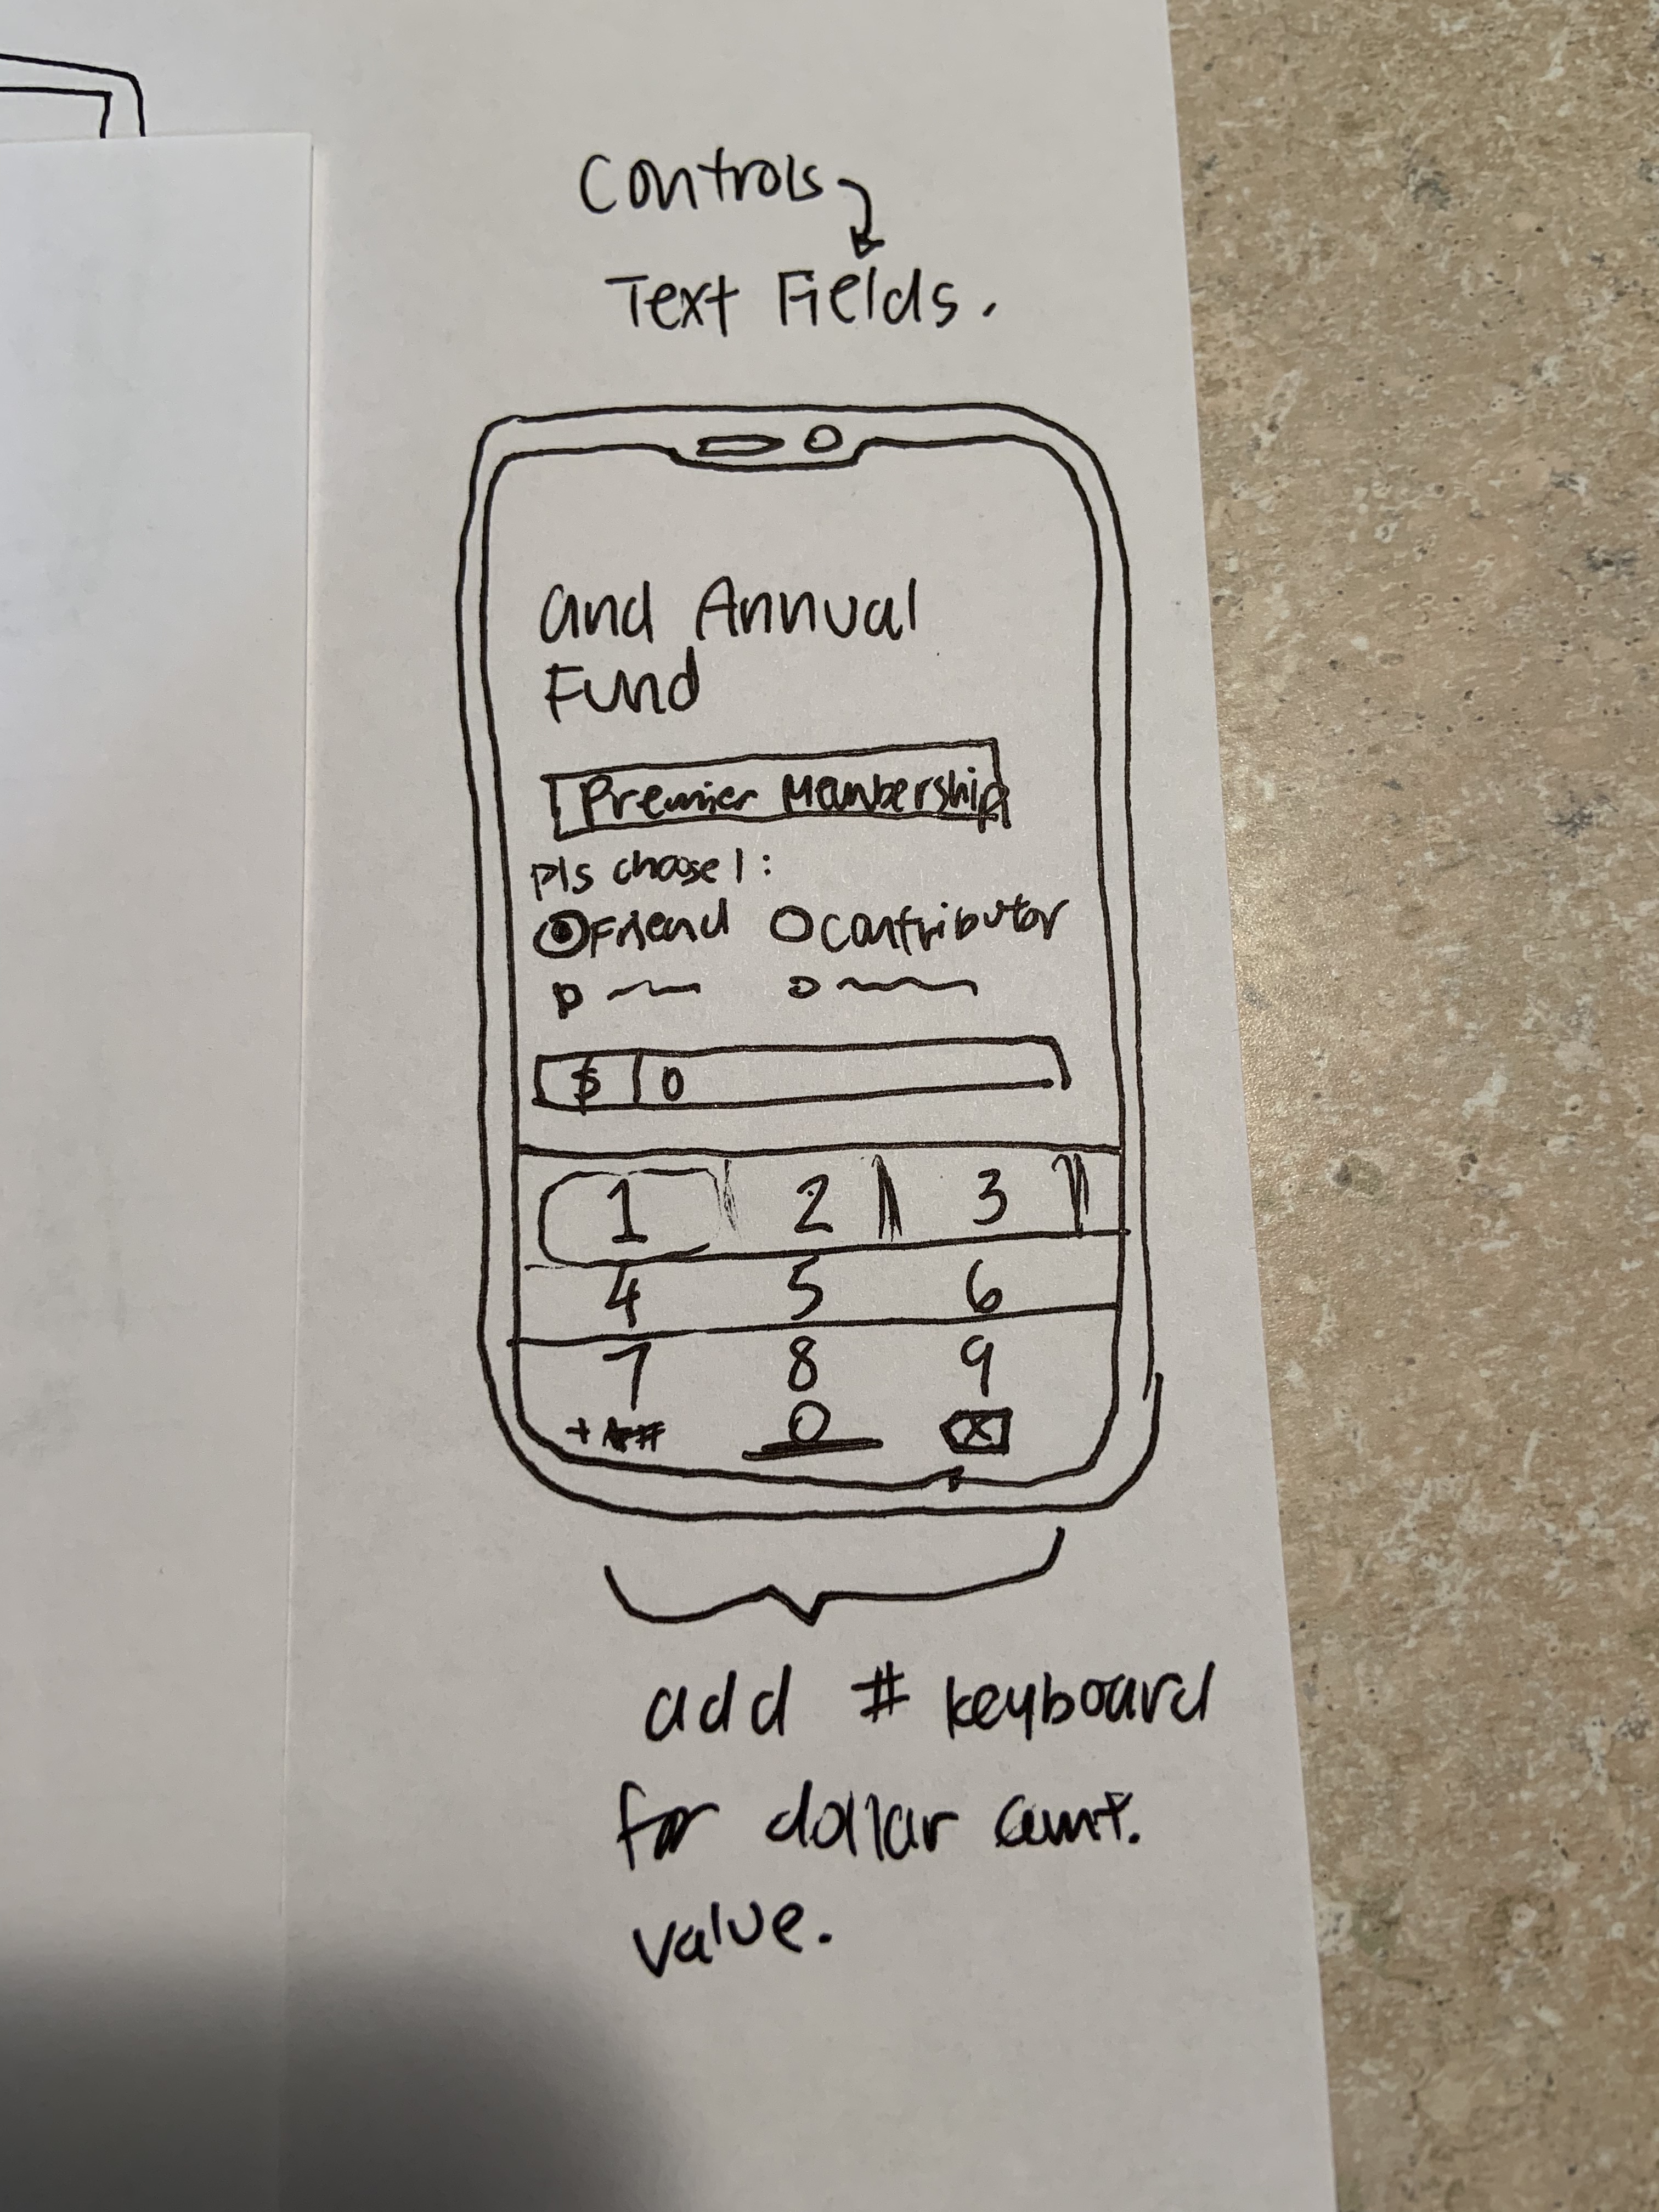 Controls
Text Fields.
and Annual
Fund
Premier Membership
pls choose 1:
Friend Contributor
$ 0
1 2 3
4 5 6
7 8 9
+*# 0 X
add # keyboard
for dollar amt.
value.